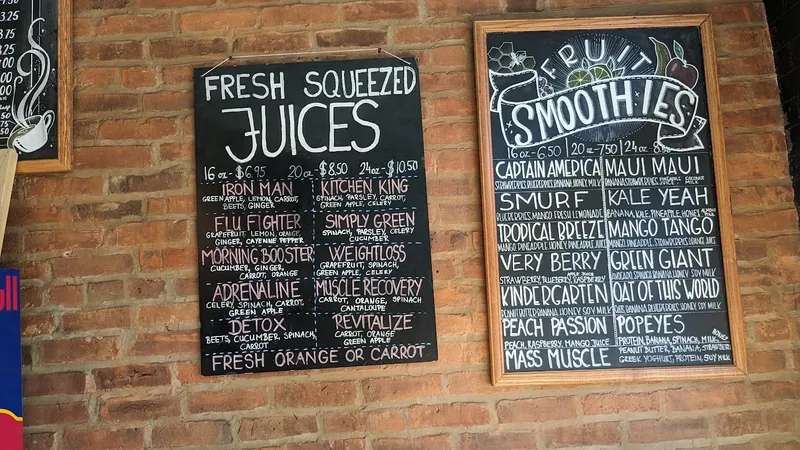 3.25
3.75
FRESH SQUEEZED
JUICES
16 oz - $6.95 20 oz $8.50 24oz - $10.50
IRON MAN
GREEN APPLE, LEMON, CARROT,
BEETS, GINGER
KITCHEN KING
SPINACH, PARSLEY, CARROT,
GREEN APPLE, CELERY
FLU FIGHTER
GRAPEFRUIT, LEMON, ORANGE,
GINGER, CAYENNE PEPPER
SIMPLY GREEN
SPINACH, PARSLEY, CELERY
CUCUMBER
MORNING BOOSTER
CUCUMBER, GINGER,
CARROT, ORANGE
WEIGHTLOSS
GRAPEFRUIT, SPINACH,
GREEN APPLE, CELERY
ADRENALINE
CELERY, SPINACH, CARROT,
GREEN APPLE
MUSCLE RECOVERY
CARROT, ORANGE, SPINACH
CANTALOUPE
DETOX
BEETS, CUCUMBER, SPINACH,
CARROT
REVITALIZE
CARROT, ORANGE
GREEN APPLE
FRESH ORANGE OR CARROT
FRUIT
SMOOTHIES
16 oz - 6.50 20 oz - 7.50 24 oz -
CAPTAIN AMERICA
STRAWBERRIES, BLUEBERRIES, BANANA, HONEY, MILK
MAUI MAUI
BANANA, STRAWBERRIES, PINEAPPLE COCONUT MILK
SMURF
BLUEBERRIES, MANGO, FRESH LEMONADE
KALE YEAH
BANANA, KALE, PINEAPPLE, HONEY
TROPICAL BREEZE
MANGO, PINEAPPLE, HONEY, PINEAPPLE JUICE
MANGO TANGO
MANGO, PINEAPPLE, STRAWBERRIES, JUICE
VERY BERRY
STRAWBERRY, BLUEBERRY, RASPBERRY, APPLE JUICE
GREEN GIANT
AVOCADO, SPIRUS, BANANA, HONEY, SOY MILK
KINDERGARTEN
PEANUT BUTTER, BANANA, HONEY, SOY MILK
OAT OF THIS WORLD
OATS, BANANA, HONEY, SOY MILK
PEACH PASSION
PEACH, RASPBERRY, MANGO JUICE
POPEYES
PROTEIN, BANANA, SPINACH, MILK, HONEY
MASS MUSCLE
PEANUT BUTTER, BANANA, STRAWBERRY
GREEK YOGHURT, PROTEIN, SOY MILK
ull